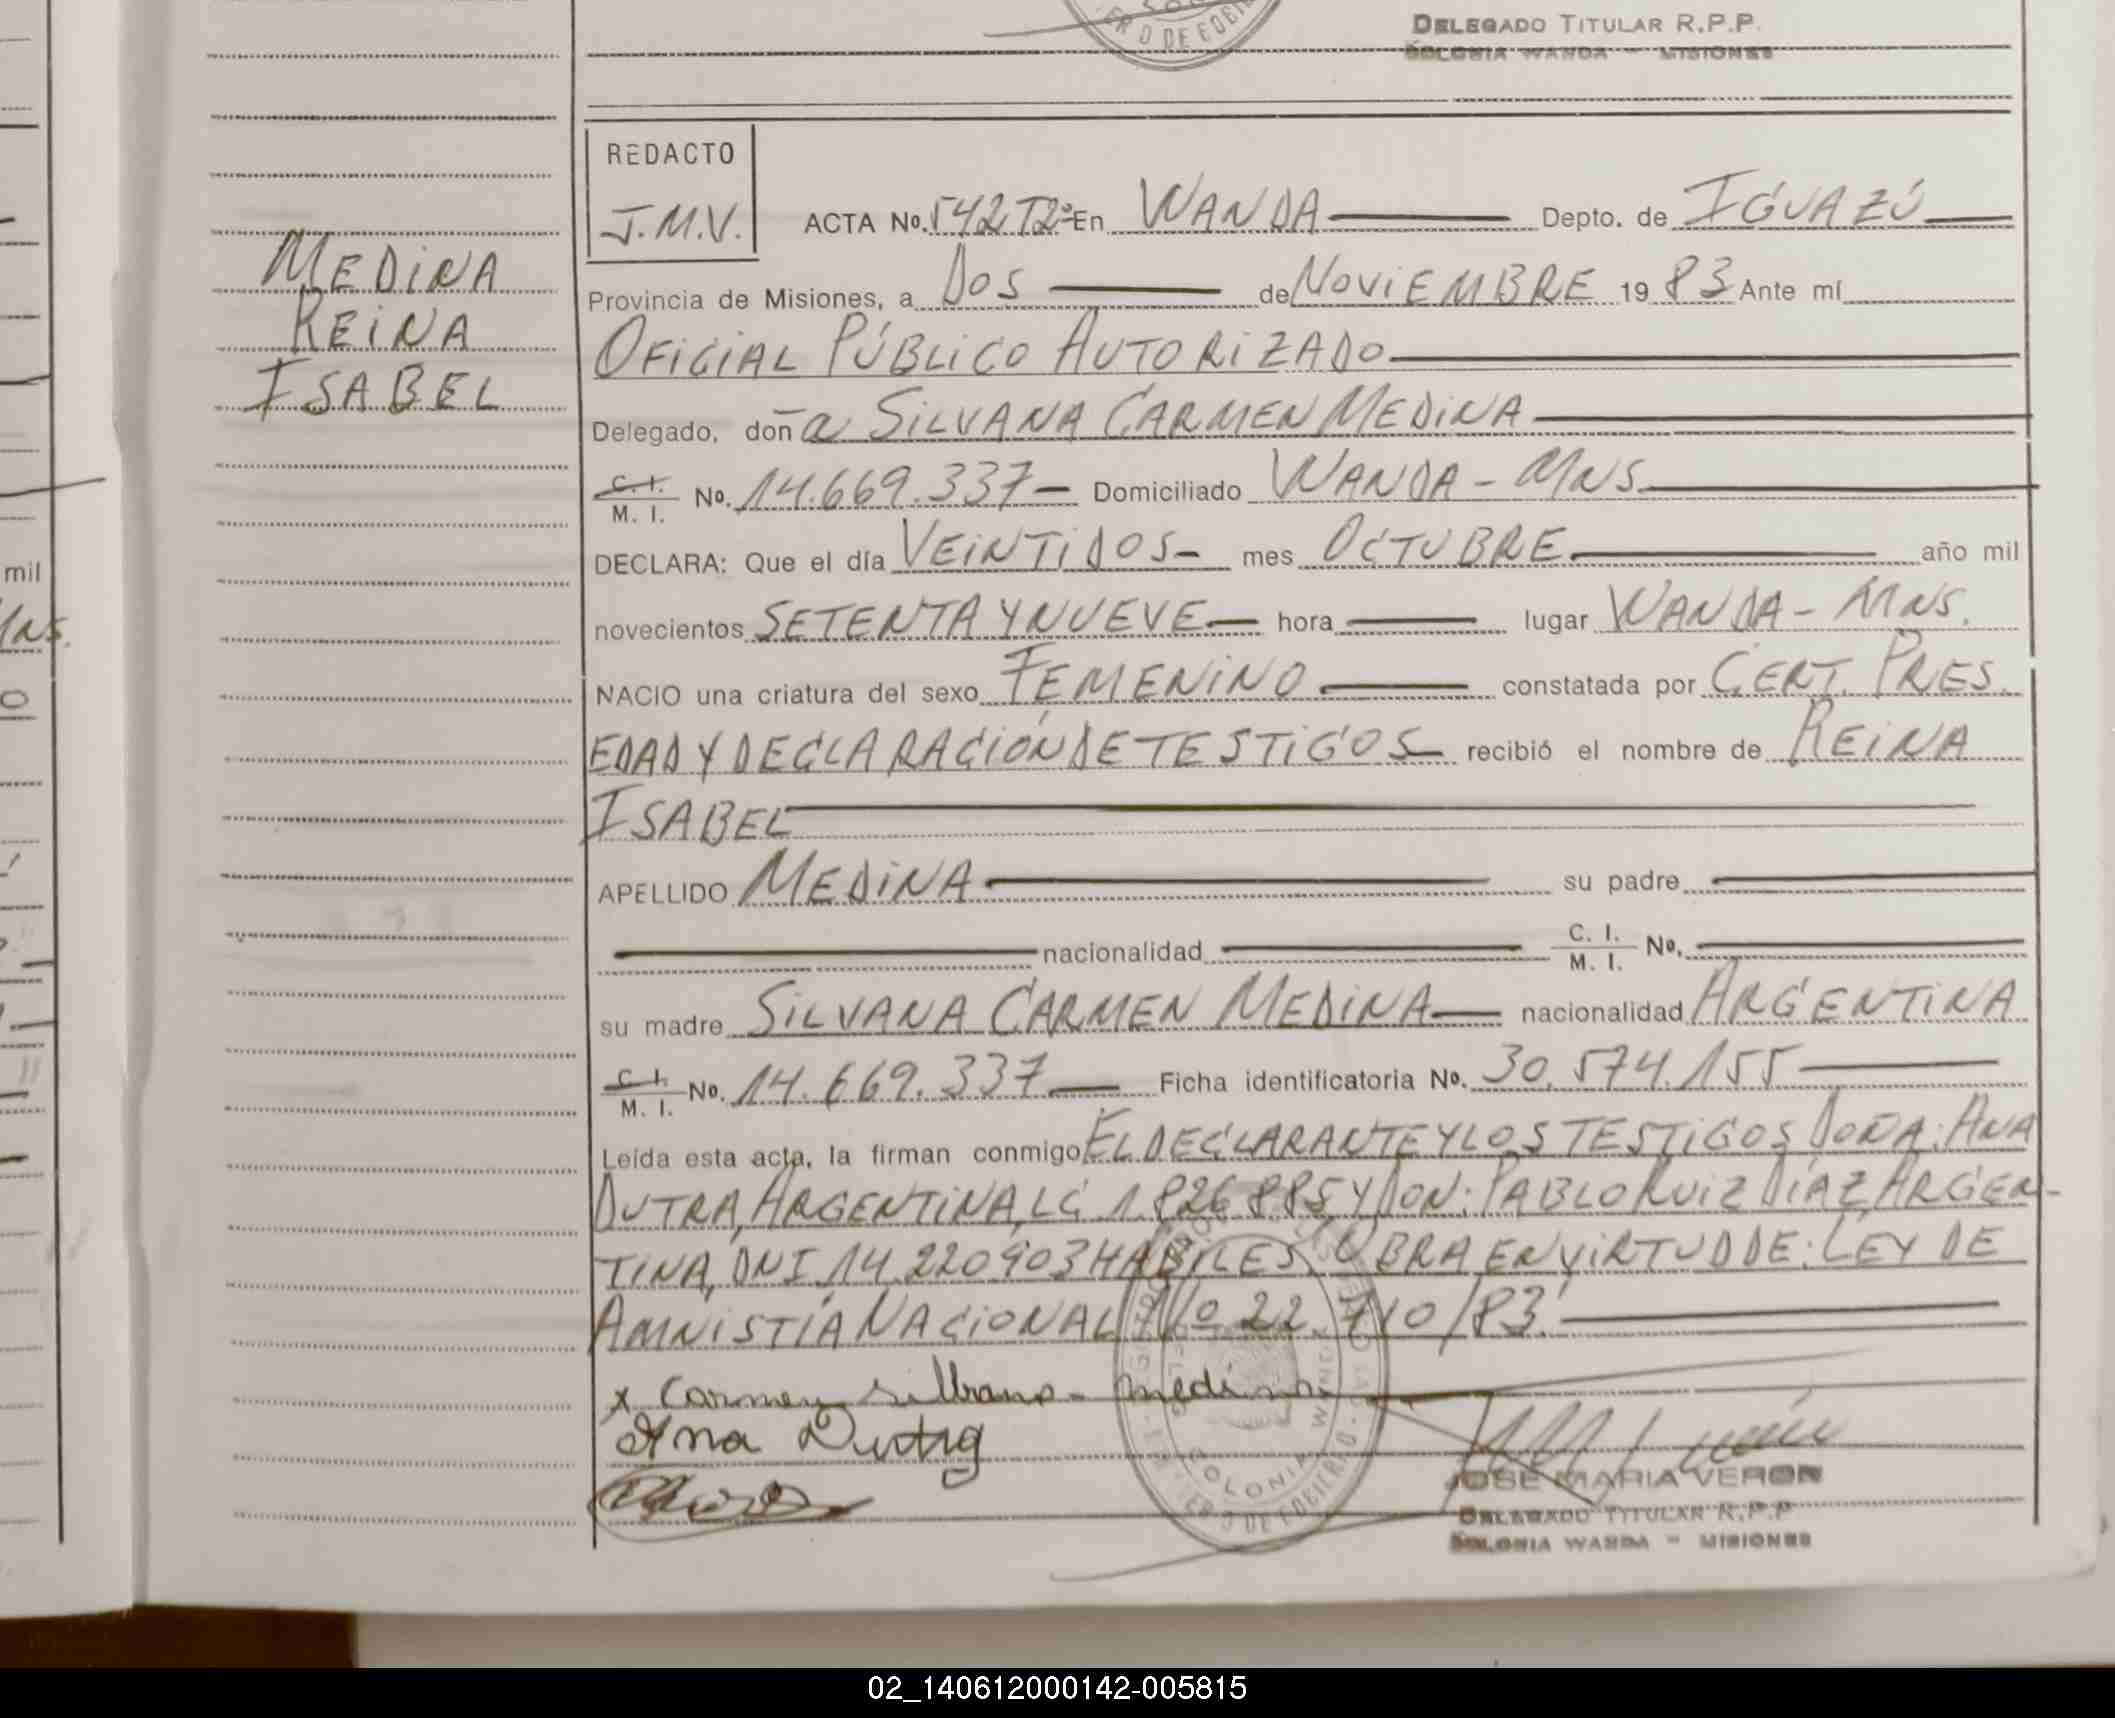 DELEGADO TITULAR R.P.P.
COLONIA WANDA - MISIONES
MEDINA
REINA
ISABEL
REDACTO
J.M.V.
ACTA No. 542 T2º En WANDA Depto. de IGUAZÚ
Provincia de Misiones, a DOS de NOVIEMBRE 19 83 Ante mí
OFICIAL PÚBLICO AUTORIZADO
Delegado, doña SILVANA CARMEN MEDINA
C. I.
M. I. No. 14.669.337 Domiciliado WANDA - MNS.
DECLARA: Que el día VEINTIDOS mes OCTUBRE año mil
novecientos SETENTA Y NUEVE hora lugar WANDA - MNS.
NACIO una criatura del sexo FEMENINO constatada por CERT. PRES.
EDAD Y DECLARACIÓN DE TESTIGOS recibió el nombre de REINA
ISABEL
APELLIDO MEDINA su padre
nacionalidad C. I.
M. I. No.
su madre SILVANA CARMEN MEDINA nacionalidad ARGENTINA
C. I.
M. I. No. 14.669.337 Ficha identificatoria No. 30.574.155
Leída esta acta, la firman conmigo EL DECLARANTE Y LOS TESTIGOS DOÑA: ANA
DUTRA, ARGENTINA, LC 1.826.885 Y DON: PABLO RUIZ DÍAZ, ARGEN-
TINA, DNI 14.220903 HABILES. OBRA EN VIRTUD DE: LEY DE
AMNISTÍA NACIONAL No 22.710/83.
x Carmen Silbana - medina
Ana Dutra
JOSE MARIA VERON
DELEGADO TITULAR R.P.P
COLONIA WANDA - MISIONES
mil
Mns.
02_140612000142-005815